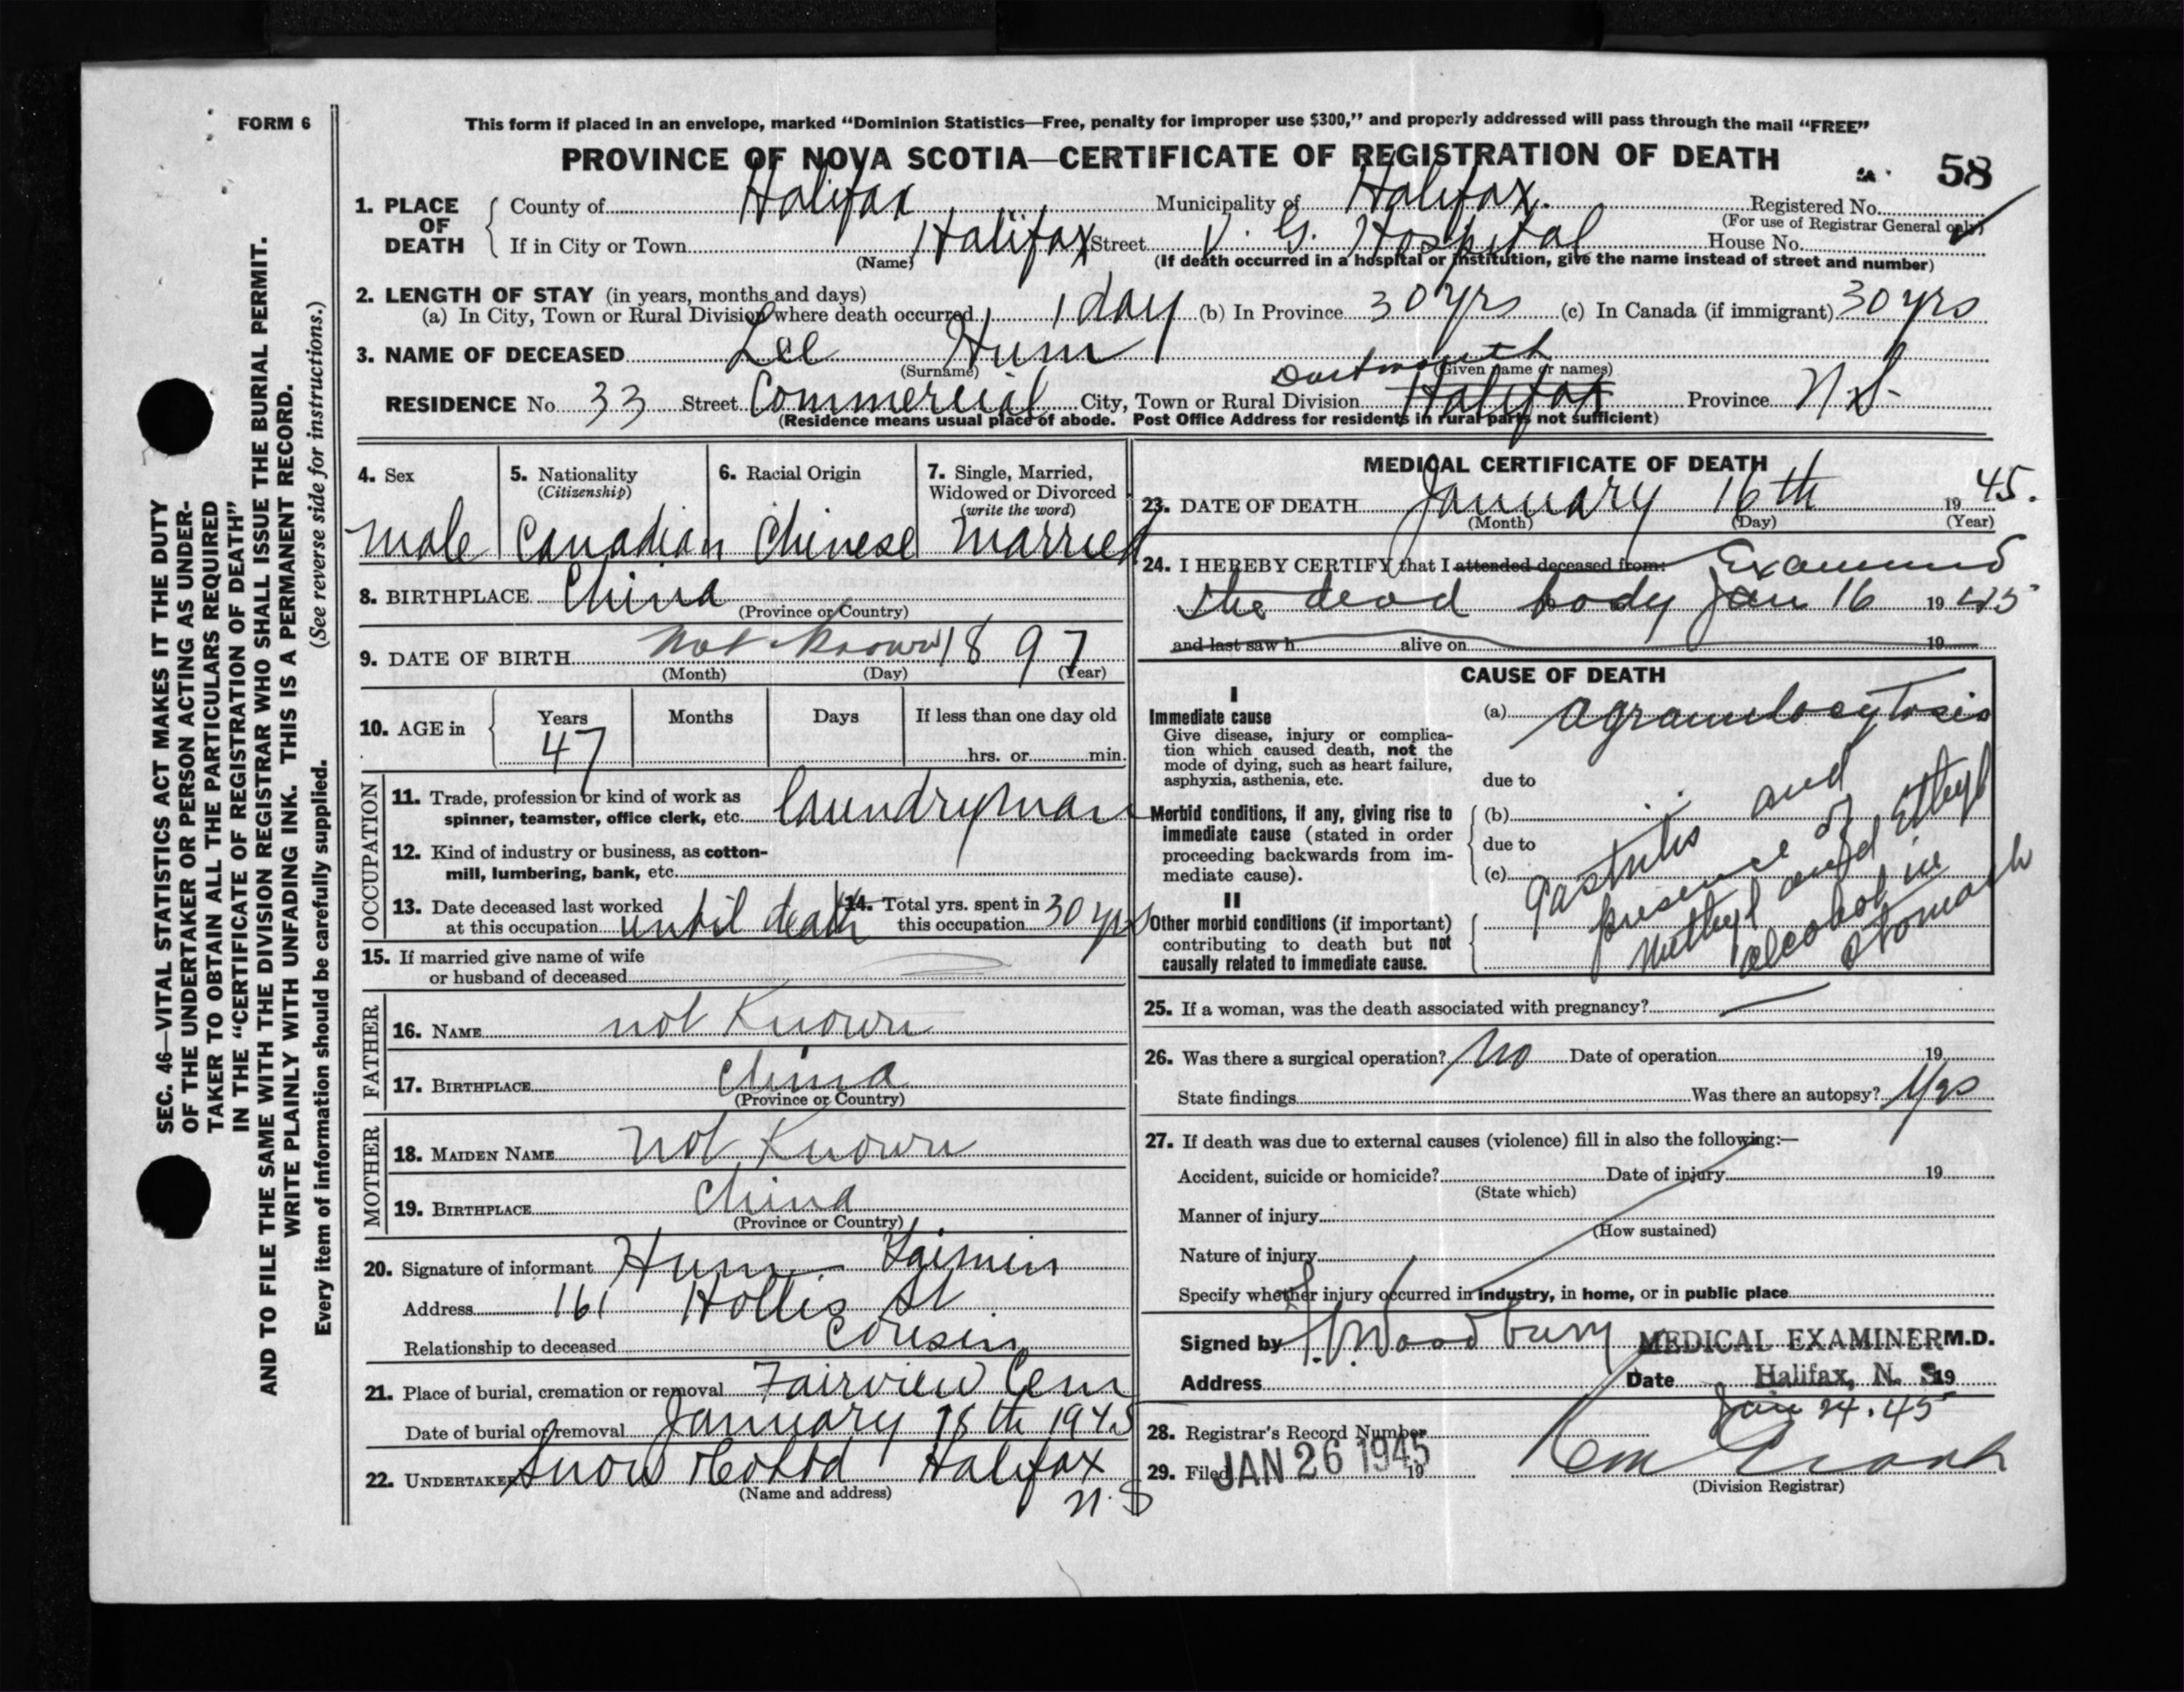 FORM 6
This form if placed in an envelope, marked “Dominion Statistics—Free, penalty for improper use $300,” and properly addressed will pass through the mail “FREE”
PROVINCE OF NOVA SCOTIA—CERTIFICATE OF REGISTRATION OF DEATH
58
1. PLACE OF DEATH
County of Halifax Municipality of Halifax. Registered No.
(For use of Registrar General only)
If in City or Town Halifax Street V. G. Hospital House No.
(Name) (If death occurred in a hospital or institution, give the name instead of street and number)
2. LENGTH OF STAY (in years, months and days)
(a) In City, Town or Rural Division where death occurred 1 day (b) In Province 30 yrs (c) In Canada (if immigrant) 30 yrs
3. NAME OF DECEASED Lee Hum
(Surname) (Given name or names)
Dartmouth
RESIDENCE No. 33 Street Commercial City, Town or Rural Division Halifax Province N.S.
(Residence means usual place of abode. Post Office Address for residents in rural parts not sufficient)
4. Sex
male
5. Nationality
(Citizenship)
Canadian
6. Racial Origin
Chinese
7. Single, Married,
Widowed or Divorced
(write the word)
Married
8. BIRTHPLACE China
(Province or Country)
9. DATE OF BIRTH not known 1897
(Month) (Day) (Year)
10. AGE in
Years Months Days If less than one day old
47
hrs. or min.
OCCUPATION
11. Trade, profession or kind of work as
spinner, teamster, office clerk, etc. laundryman
12. Kind of industry or business, as cotton-
mill, lumbering, bank, etc.
13. Date deceased last worked
at this occupation until death
14. Total yrs. spent in
this occupation 30 yrs
15. If married give name of wife
or husband of deceased
FATHER
16. NAME not Known
17. BIRTHPLACE China
(Province or Country)
MOTHER
18. MAIDEN NAME not Known
19. BIRTHPLACE China
(Province or Country)
20. Signature of informant Hum
Address 161 Hollis St.
Relationship to deceased cousin
21. Place of burial, cremation or removal Fairview Cem
Date of burial or removal January 18th 1945
22. UNDERTAKER Snow & Co Ltd Halifax
(Name and address)
N.S
MEDICAL CERTIFICATE OF DEATH
23. DATE OF DEATH January 16th 1945.
(Month) (Day) (Year)
24. I HEREBY CERTIFY that I attended deceased from: Examined
the dead body Jan 16 1945
and last saw h alive on 19
CAUSE OF DEATH
I
Immediate cause
Give disease, injury or complica-
tion which caused death, not the
mode of dying, such as heart failure,
asphyxia, asthenia, etc.
(a) Agranulocytosis
due to
Morbid conditions, if any, giving rise to
immediate cause (stated in order
proceeding backwards from im-
mediate cause).
(b)
due to
(c)
II
Other morbid conditions (if important)
contributing to death but not
causally related to immediate cause.
Gastritis and
presence of
Methyl and Ethyl
alcohol in
stomach
25. If a woman, was the death associated with pregnancy?
26. Was there a surgical operation? No Date of operation 19
State findings Was there an autopsy? Yes
27. If death was due to external causes (violence) fill in also the following:—
Accident, suicide or homicide? Date of injury 19
(State which)
Manner of injury
(How sustained)
Nature of injury
Specify whether injury occurred in industry, in home, or in public place
Signed by Woodbury MEDICAL EXAMINER M.D.
Address Date Halifax, N. S. 19
Jan 24. 45
28. Registrar's Record Number
29. Filed JAN 26 1945 19
(Division Registrar)
SEC. 46—VITAL STATISTICS ACT MAKES IT THE DUTY
OF THE UNDERTAKER OR PERSON ACTING AS UNDER-
TAKER TO OBTAIN ALL THE PARTICULARS REQUIRED
IN THE “CERTIFICATE OF REGISTRATION OF DEATH”
AND TO FILE THE SAME WITH THE DIVISION REGISTRAR WHO SHALL ISSUE THE BURIAL PERMIT.
WRITE PLAINLY WITH UNFADING INK. THIS IS A PERMANENT RECORD.
Every item of information should be carefully supplied. (See reverse side for instructions.)